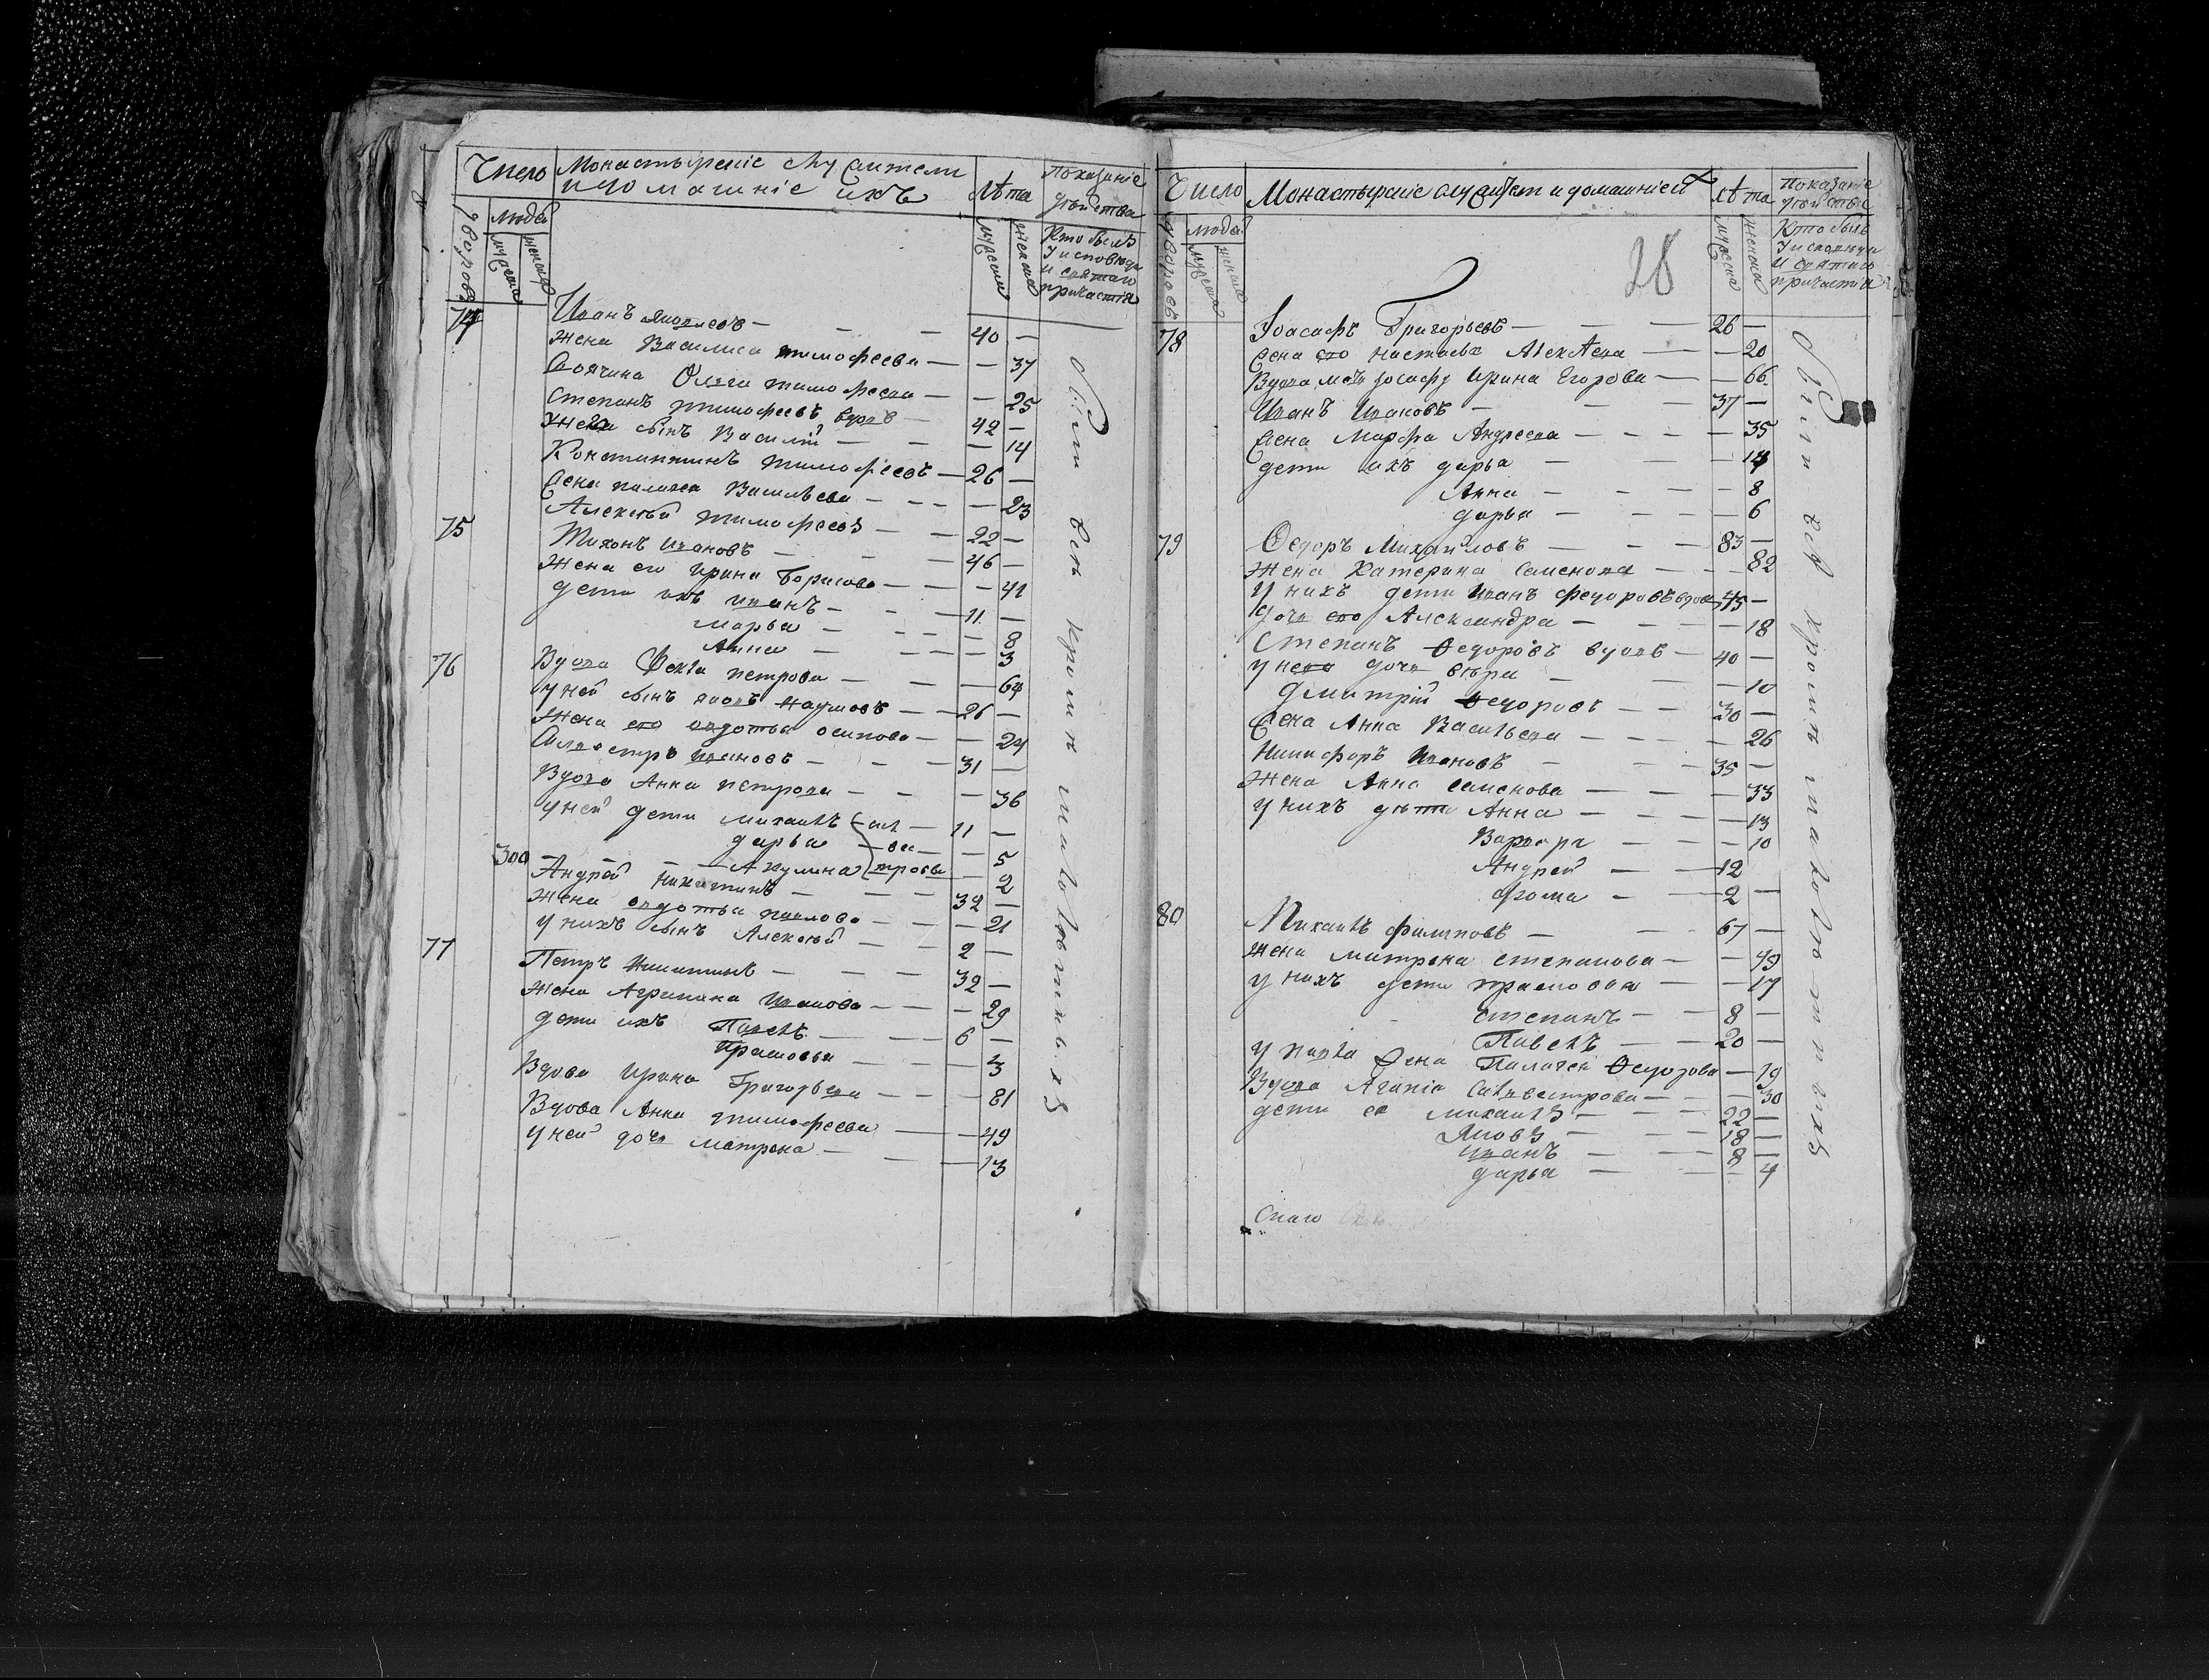 Число
Монастырскіе служители
и домашніе ихъ
Лѣта
Показаніе
дѣйства
дворовъ
людей
мужеска
женска
мужеска
женска
Кто былъ
у исповѣди
и святаго
причастія
74
Иванъ Яковлевъ — — — 40 —
жена Василиса тимофеева — — 37
Ольга тимофеева — — 25
Степанъ тимофеевъ вдовъ — 42 —
сынъ Василій — — — 14
Константинъ тимофеевъ — 26 —
жена пелагея Васильева — — — 23
Алексѣй тимофеевъ — — 22 —
75
Тихонъ Ивановъ — — — 46 —
жена его Ирина Борисова — — — 41
дети ихъ иванъ — — — 11 —
марья — — — — 8
Анна — — — — 3
76
Вдова Фекла петрова — — — 64
у ней сынъ яковъ наумовъ — — 26 —
Жена его авдотья осипова — — 24
Силвестръ ивановъ — — — 31 —
Вдова Анна петрова — — — 36
у ней дети михаилъ — сил — 11 —
дарья — ве — — 5
300 — — — Акулина строва — 2
Андрей никитинъ — — — 32 —
жена авдотья павлова — — — 21
у нихъ сынъ Алексѣй — — 2 —
77
Петръ Никитинъ — — — 32 —
жена Агрипина Иванова — — — 29
дети ихъ Павелъ — — — 6 —
Прасковья — — — 3
Вдова Ирина Григорьева — — — 81
Вдова Анна тимофеева — — 49
у ней дочь Матрена — — — 13
Сіи всѣ кромѣ малолѣтныхъ
Число
Монастырскіе служител и домашніе их
лѣта
Показаніе
дѣйства
28
дворовъ
людей
мужеска
женска
мужеска
женска
Кто былъ
у исповѣди
и святаго
причастія
78
Іоасафъ Григорьевъ — — 26 —
жена его настасья Алексѣева — — 20
Вдова мать іоасафу Ирина Егорова — — 66
Иванъ Ивановъ — — — 37 —
жена Марфа Андреева — — — — 35
дети ихъ дарья — — — 14
Анна — — — 8
дарья — — — — 6
79
Ѳедоръ Михайловъ — — — 83 —
жена Катерина Семенова — — — 82
у нихъ дети Иванъ федоровъ вдовъ 45 —
дочь его Александра — — — — 18
Степанъ Ѳедоровъ вдовъ — 40 —
у нево дочь вѣра — — — 10
Дмитрій Ѳедоровъ — — 30 —
жена Анна Васильева — — — — 26
Никифоръ Ивановъ — — 35 —
Жена Анна Семенова — — — 33
у нихъ дѣти Анна — — — — 13
Варвара — — — 10
Андрей — — 12
фома — — 2 —
80
Михаилъ филиповъ — — 67 —
жена матрена степанова — — 49
у нихъ дети прасковья — — 17
степанъ — — 8 —
Павелъ — — 20 —
у павла жена Палагея Ѳедорова — 19
Вдова Агапіа Силвестрова — — — 30
дети ее михаилъ — — — 22 —
Яковъ — — — 18 —
иванъ — — — 8 —
дарья — — — 4
Сіи всѣ кромѣ малолѣтныхъ